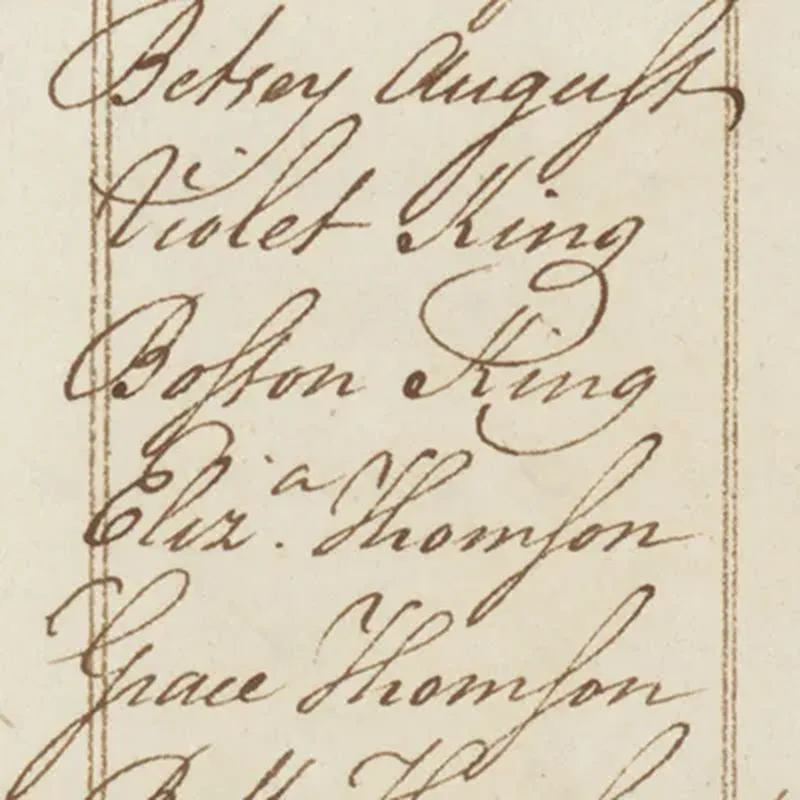 Betsey Auguſt
Violet King
Boſton King
Eliz.ᵃ Thomſon
Grace Thomſon